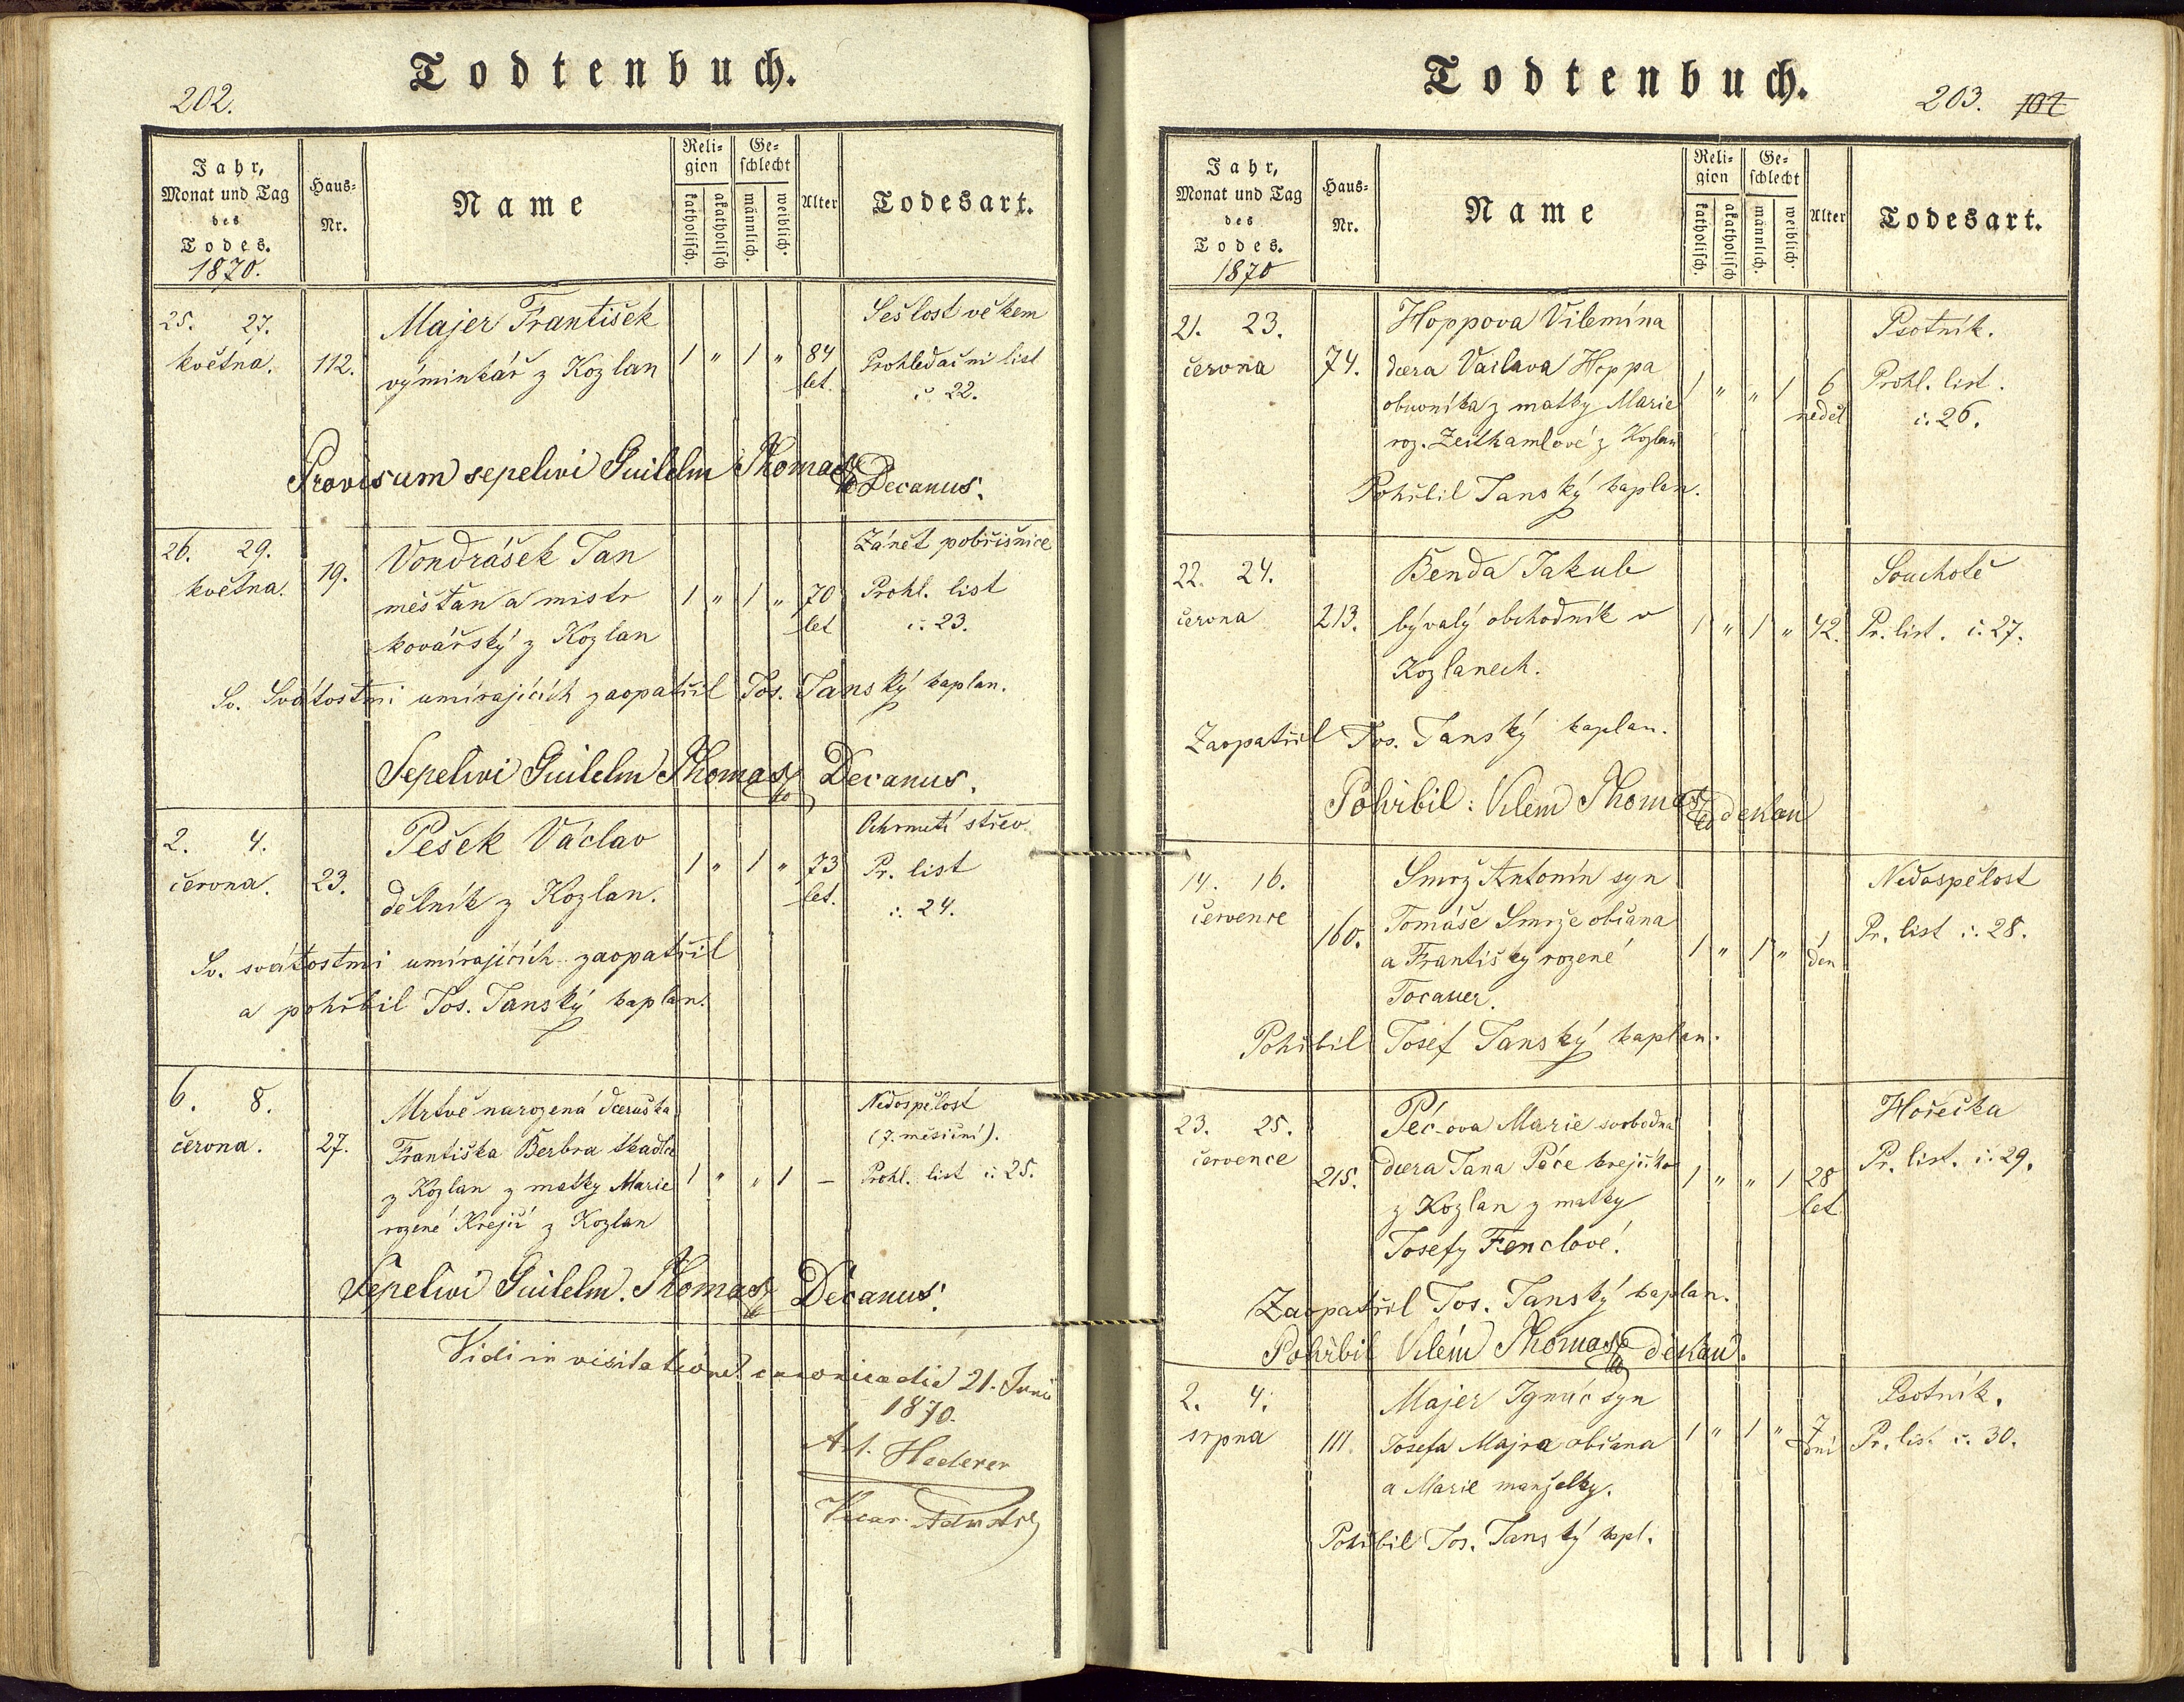 202.
Todtenbuch.
Jahr,
Monat und Tag
des
Todes.
1870.
Haus-
Nr.
Name
Reli-
gion
katholisch.
akatholisch
Ge-
schlecht
männlich.
weiblich.
Alter
Todesart.
25. 27.
května.
112.
Majer František
výminkář z Kozlan
1 " 1 " 84
let.
Sešlost věkem
Prohledací list
č. 22.
Provisum sepelivi Guilelm Thomas Decanus.
26. 29.
května.
19.
Vondrášek Jan
měšťan a mistr
kovářský z Kozlan
1 " 1 " 70
let
Zánět pobřišnice
Prohl. list
č. 23.
Sv. Svátostmi umírajících zaopatřil Jos. Janský kaplan.
Sepelivi Guilelm Thomas Decanus.
2. 4.
června.
23.
Pešek Václav
dělník z Kozlan.
1 " 1 " 73
let.
Ochrnutí střev.
Pr. list
č. 24.
Sv. svátostmi umírajících zaopatřil
a pohřbil Jos. Janský kaplan.
6. 8.
června.
27.
Mrtvě narozená dceruška
Františka Berbra tkadlce
z Kozlan z matky Marie
rozené Krejčí z Kozlan
1 " " 1 –
Nedospělost
(7. měsíční).
Prohl. list č. 25.
Sepelivi Guilelm. Thomas Decanus.
Vidi in visitatione canonica die 21. Juni
1870.
Ant. Hederer
Vicar.
Todtenbuch.
203. 102
Jahr,
Monat und Tag
des
Todes.
1870
Haus-
Nr.
Name
Reli-
gion
katholisch.
akatholisch
Ge-
schlecht
männlich.
weiblich.
Alter
Todesart.
21. 23.
června
74.
Hoppova Vilemína
dcera Václava Hoppa
obuvníka z matky Marie
roz. Zeithamlové z Kozlan
1 " " 1 6
neděl
Psotník.
Prohl. list.
č. 26.
Pohřbil Janský kaplan.
22. 24.
června
213.
Benda Jakub
bývalý obchodník v
Kozlanech.
1 " 1 " 42.
Souchotě
Pr. list. č. 27.
Zaopatřil Jos. Janský kaplan.
Pohřbil: Vilém Thomas dekan
14. 16.
července
160.
Smrž Antonín syn
Tomáše Smrže občana
a Františky rozené
Tocauer.
1 " 1 " 1
den
Nedospělost
Pr. list č. 28.
Pohřbil Josef Janský kaplan.
23. 25.
července
215.
Péc-ova Marie svobodná
dcera Jana Péce krejčího
z Kozlan z matky
Josefy Fenclové.
1 " " 1 28
let
Hořečka
Pr. list. č. 29.
Zaopatřil Jos. Janský kaplan.
Pohřbil Vilém Thomas děkan.
2. 4.
srpna
111.
Majer Ignác syn
Josefa Majra občana
a Marie manželky.
1 " 1 " 7
dní
Psotník.
Pr. list č. 30.
Pohřbil Jos. Janský kapl.